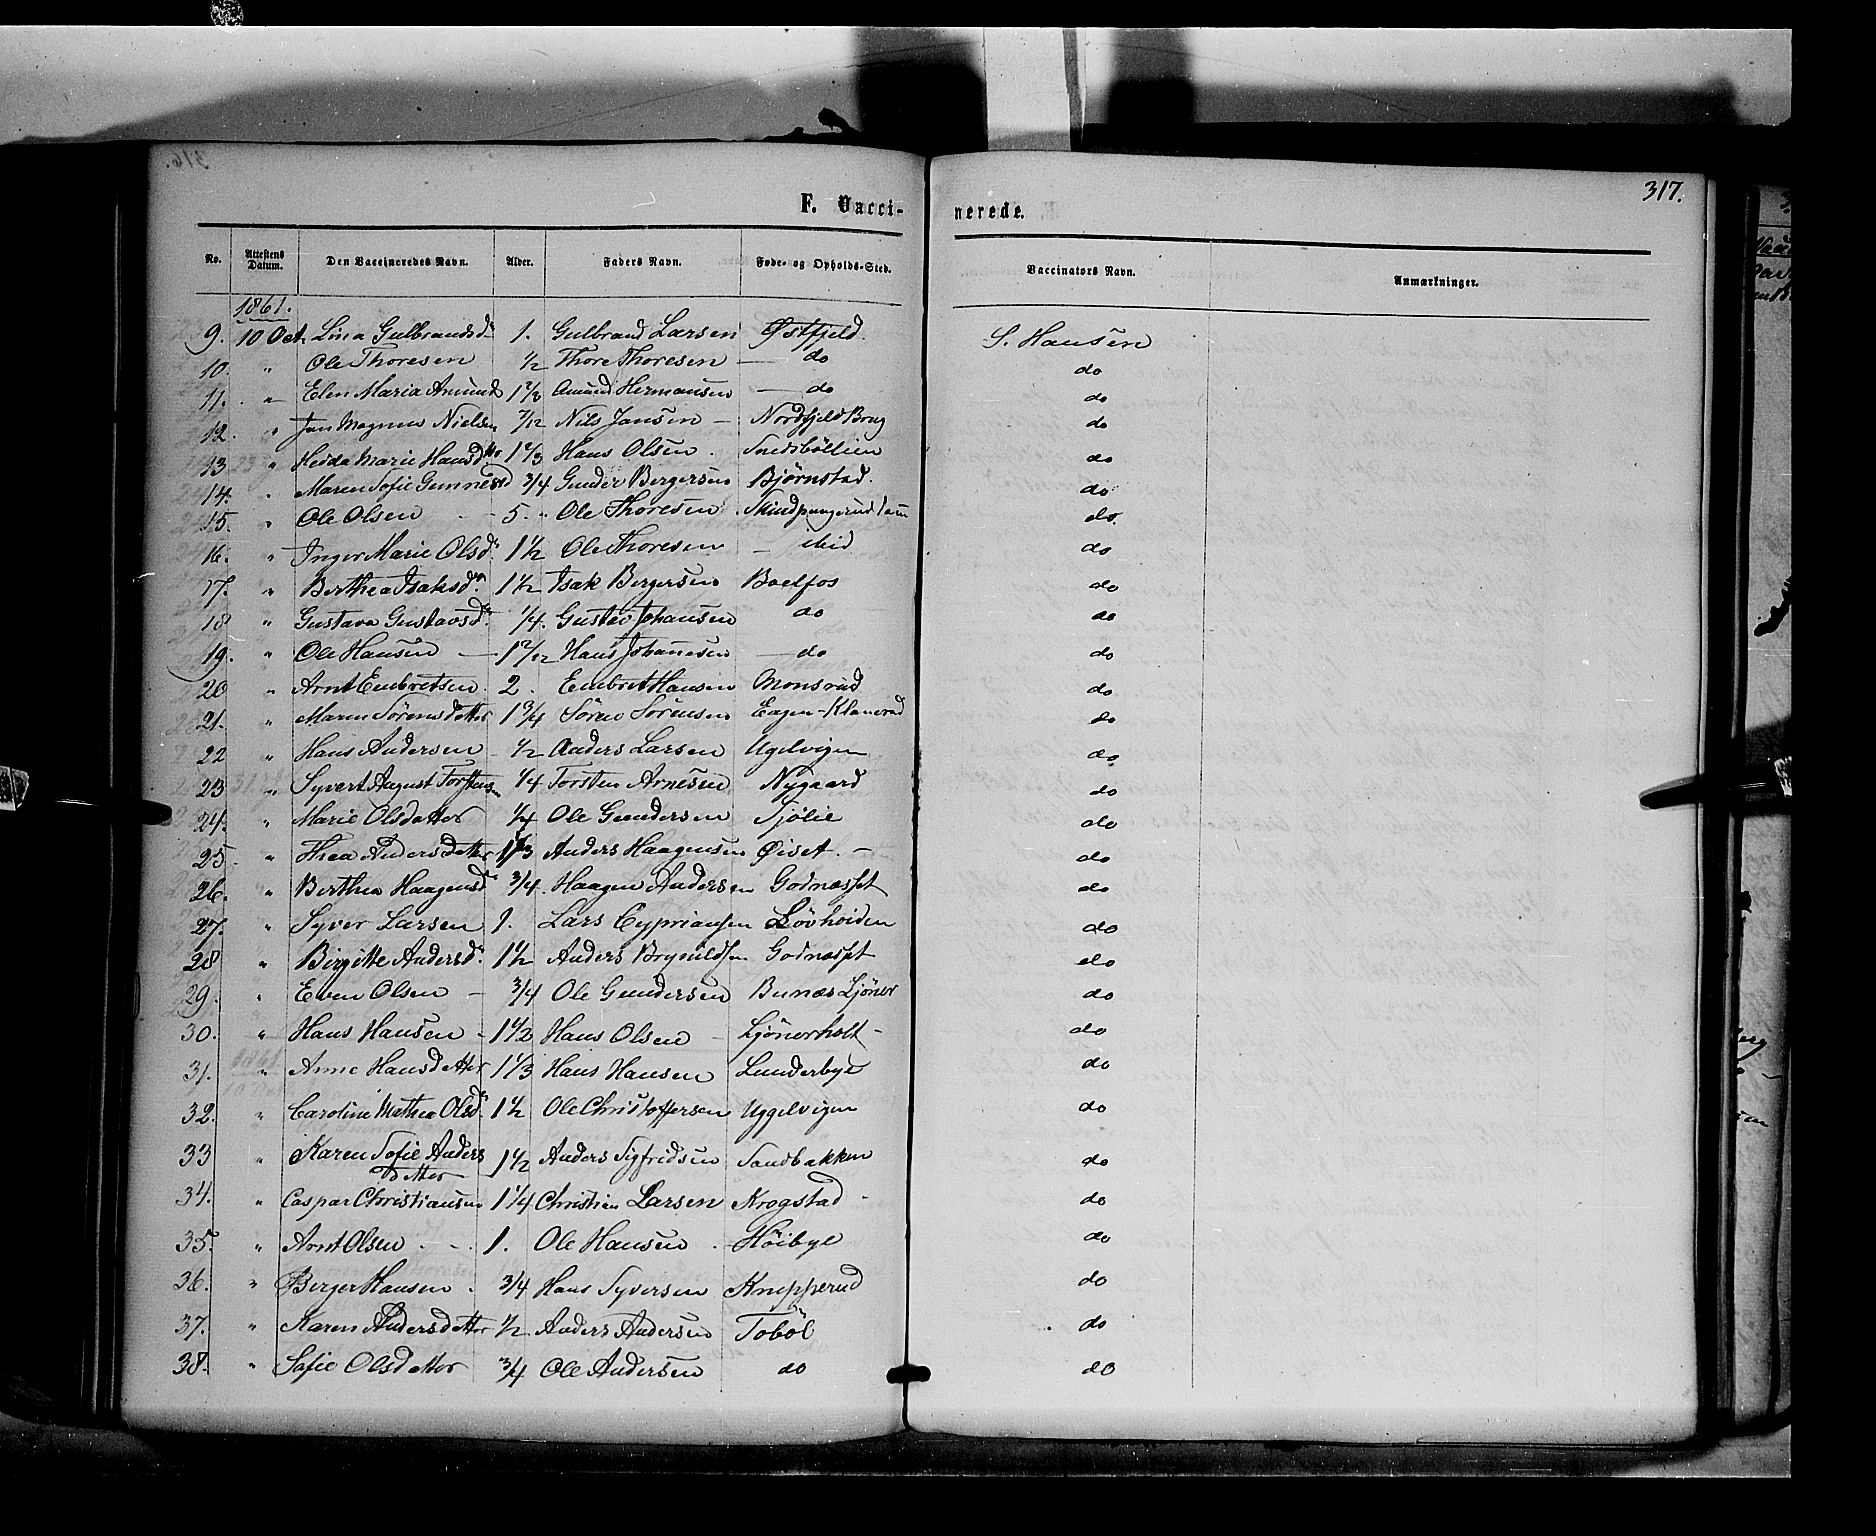 317.
F. Vacci-nerede.
No. Attestens Datum. Den Vaccineredes Navn. Alder. Faders Navn. Føde- og Opholds-Sted. Vaccinators Navn. Anmærkninger.
1861.
9. 10 Oct. Lina Gulbrandsd. 1. Gulbrand Larsen Østfjeld. S. Hansen
10. " Ole Thoresen ½ Thore Thoresen — do do
11. " Elen Maria Amunds Amund Hermansen — do do
12. " Jan Magnus Nielsen 7/12 Nils Jansen — Nordfjeld Brug do
13 " Hedda Marie Hansdtr Hans Olsen . do
14. " Maren Sofie 3/4 Gunder Bergersen Bjørnstad. do
15. " Ole Olsen — 5. " Ole Thoresen do.
16. " Inger Marie Olsd. 1½ Ole Thoresen — ibid do
17. " Berthea Isaksd. 1½ Isak Bergersen Boelfos do
18 " Gustava Gustavsd. ¼. Gustav Johansen do do
19. " Ole Hansen — Hans Johannesen — do do
20 " Arnt Embretsen. 2. Embret Hansen Monsrud do
21. " Maren Sørensdatter 1¾ Søren Sørensen do
22 " Hans Andersen ½ Anders Larsen Ugelvigen do
23 " Syvert August Torstensen ¼ Torsten Arnesen Nygaard do
24. " Marie Olsdatter ¼ Ole Gundersen Sjølie do
25 " Thea Andersdatter Anders Haagensen Øiset. — do
26. " Berthea Haagensd. 3/4. Haagen Andersen Godnæsset do
27. " Syver Larsen 1. Lars Cypriansen Løvhoiden do
28 " Birgitte Andersd. 1½ Anders Brynildsen Godnæsset do
29. " Even Olsen — 3/4 Ole Gundersen Bunæs Ljøner do
30. " Hans Hansen - 1½ Hans Olsen — Ljønerholt - do
31. " Anne Hansdatter 1⅓ Hans Hansen Lunderbye do
32. " Caroline Mathea Olsd. 1½ Ole Christoffersen Uggelvigen do
33 " Karen Sofie Anders
Datter 1½ Anders Sigfridsen Sandbakken do
34. " Caspar Christiansen 1¼ Christian Larsen Krogstad - do
35. " Arnt Olsen . - . 1. Ole Hansen . Høibye do
36. " Berger Hansen . 3/4 Hans Syversen Knapperud do
37. " Karen Andersdatter ½ Anders Andersen Tobøl do
38. " Sofie Olsdatter 3/4 Ole Andersen do do